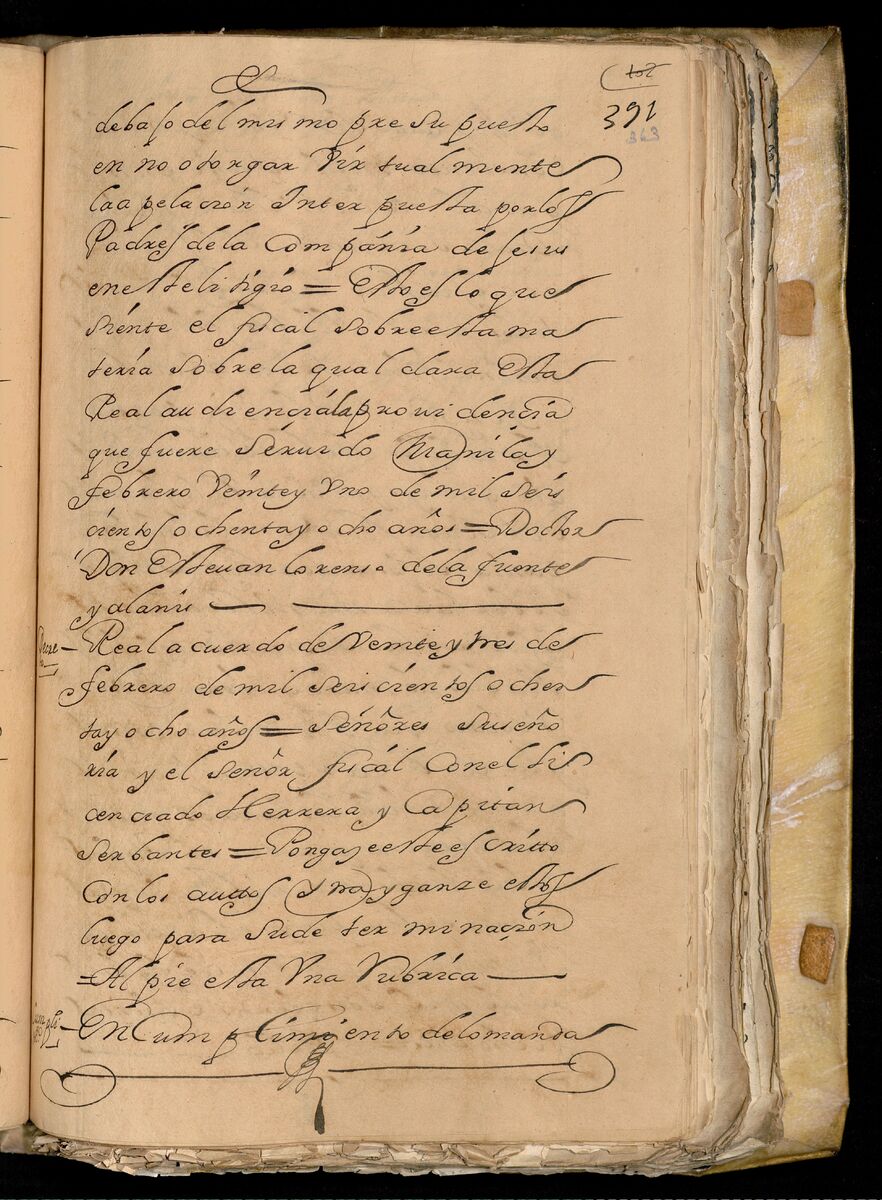 102
391
363
debajo del mismo pre su puesto
en no otorgar Virtualmente
la apelacion Inter puesta por los
Padres de la Compañia de Jesus
en este litigio = Esto es lo que
siente el fiscal sobre esta ma
teria sobre la qual dara esta
Real audiencia la providencia
que fuere seruido Manila y
febrero Veinte y Vno de mil seis
cientos ochenta y ocho años = Doctor
Don Esteuan lorenso de la fuente
y alanis
Decre
to
Real acuerdo de Veinte y tres de
febrero de mil seiscientos ochen
ta y ocho años = Señores su seño
ria y el señor fiscal con el Li
cenciado Herrera y Capitan
Serbantes = Pongase este escritto
con los auttos y trayganze estos
luego para su determinacion
= Al pie esta Vna Rubrica
En Cumplimiento de lo manda